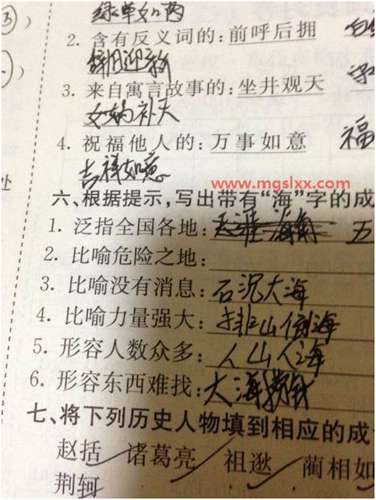 ③
2. 含有反义词的：前呼后拥
辞旧迎新
3. 来自寓言故事的：坐井观天
女娲补天
4. 祝福他人的：万事如意 福
吉祥如意
处
www.mgslxx.com
六、根据提示，写出带有“海”字的成
1. 泛指全国各地：天涯海角 五
2. 比喻危险之地：
3. 比喻没有消息：石沉大海
4. 比喻力量强大：排山倒海
5. 形容人数众多：人山人海
6. 形容东西难找：大海捞针
七、将下列历史人物填到相应的成
赵括 诸葛亮 祖逖 蔺相如
荆轲